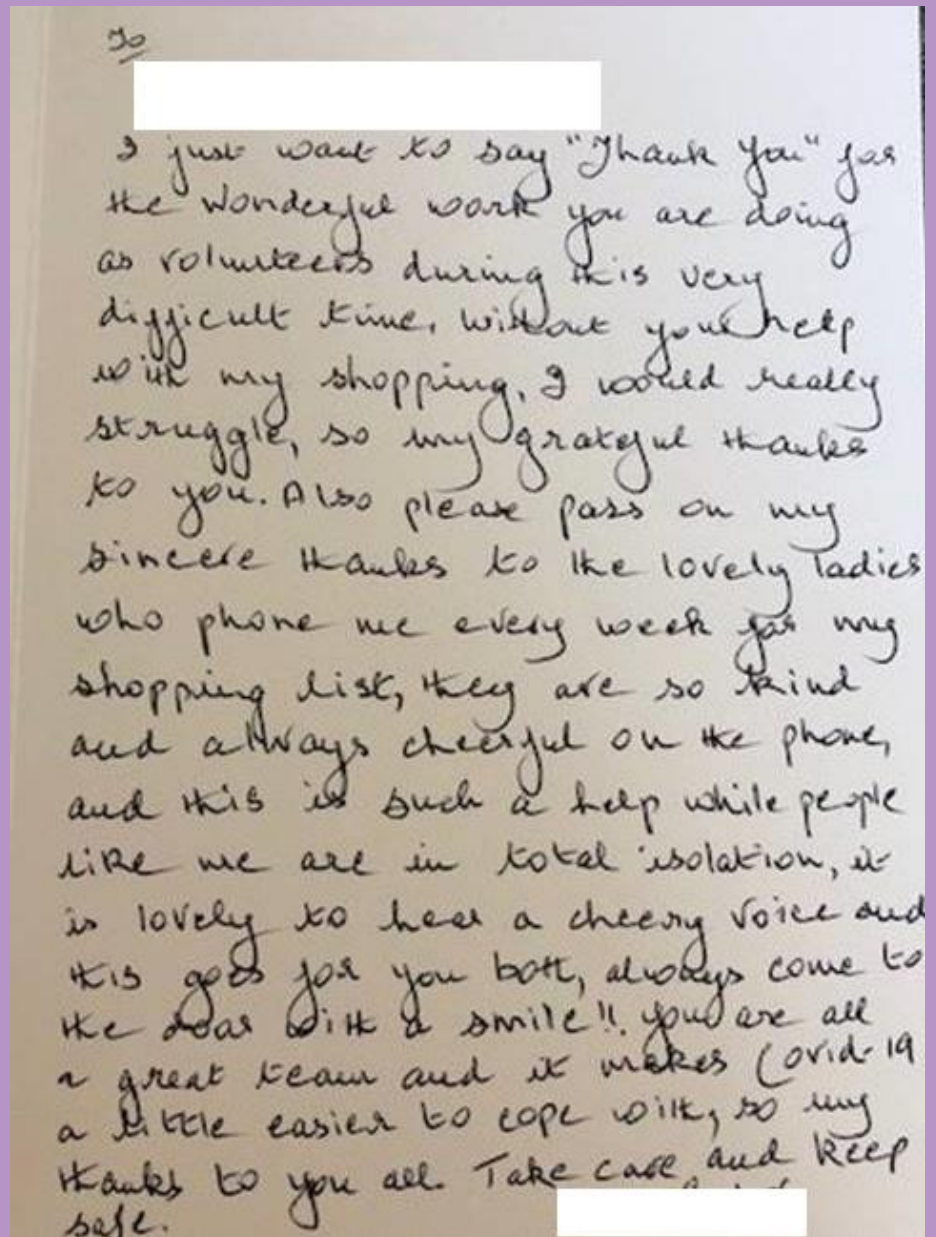 To
I just want to say "Thank You" for
the wonderful work you are doing
as volunteers during this very
difficult time. Without your help
with my shopping, I would really
struggle, so my grateful thanks
to you. Also please pass on my
sincere thanks to the lovely ladies
who phone me every week for my
shopping list, they are so kind
and always cheerful on the phone,
and this is such a help while people
like me are in total isolation, it
is lovely to hear a cheery voice and
this goes for you both, always come to
the door with a smile!! You are all
a great team and it makes Covid-19
a little easier to cope with, so my
thanks to you all. Take care and keep
safe.